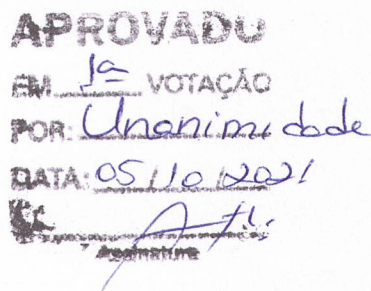 APROVADO
EM 1ª VOTAÇÃO
POR: Unanimidade
DATA: 05/10/2021
Assinatura